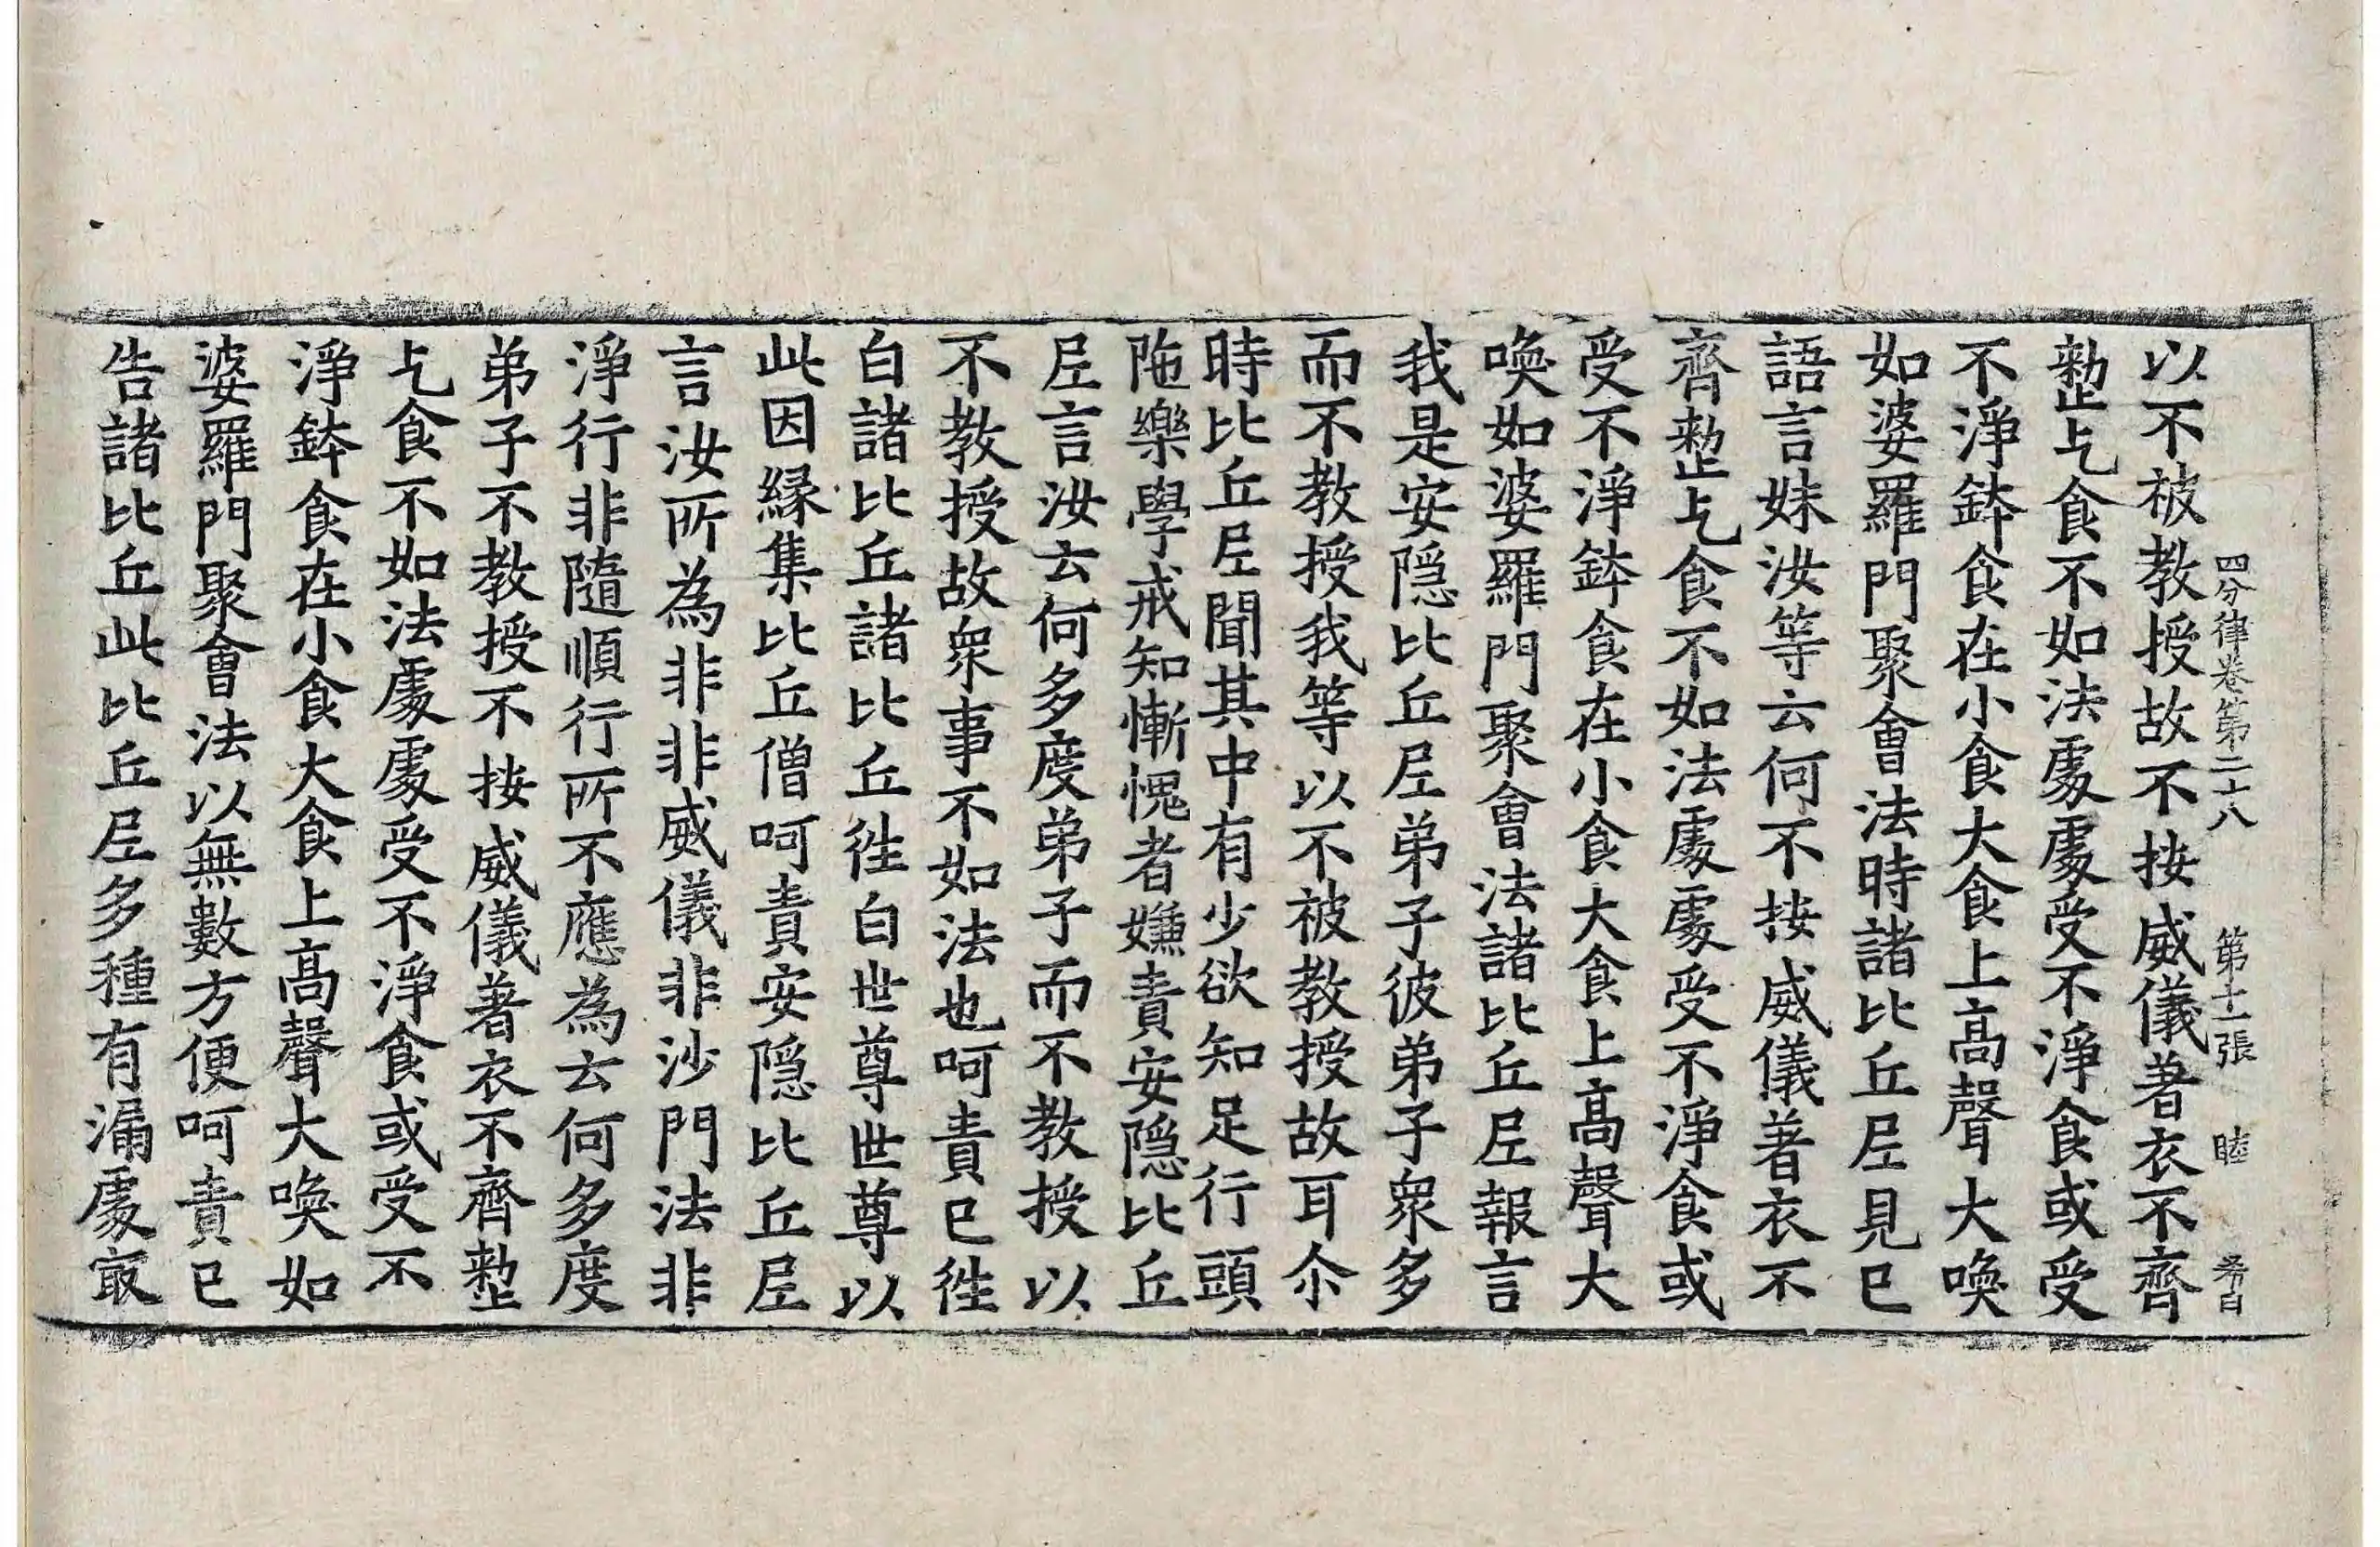 四分律卷第二十八　第十一張　睦　
以不被教授故不按威儀著衣不齊
整乞食不如法處處受不淨食或受
不淨鉢食在小食大食上高聲大喚
如婆羅門聚會法時諸比丘尼見已
語言妹汝等云何不按威儀著衣不
齊整乞食不如法處處受不淨食或
受不淨鉢食在小食大食上高聲大
喚如婆羅門聚會法諸比丘尼報言
我是安隱比丘尼弟子彼弟子衆多
而不教授我等以不被教授故耳尒
時比丘尼聞其中有少欲知足行頭
陁樂學戒知慚愧者嫌責安隱比丘
尼言汝云何多度弟子而不教授以
不教授故衆事不如法也呵責已徃
白諸比丘諸比丘徃白世尊世尊以
此因縁集比丘僧呵責安隱比丘尼
言汝所為非非威儀非沙門法非
淨行非隨順行所不應為云何多度
弟子不教授不按威儀著衣不齊整
乞食不如法處處受不淨食或受不
淨鉢食在小食大食上高聲大喚如
婆羅門聚會法以無數方便呵責已
告諸比丘此比丘尼多種有漏處㝡